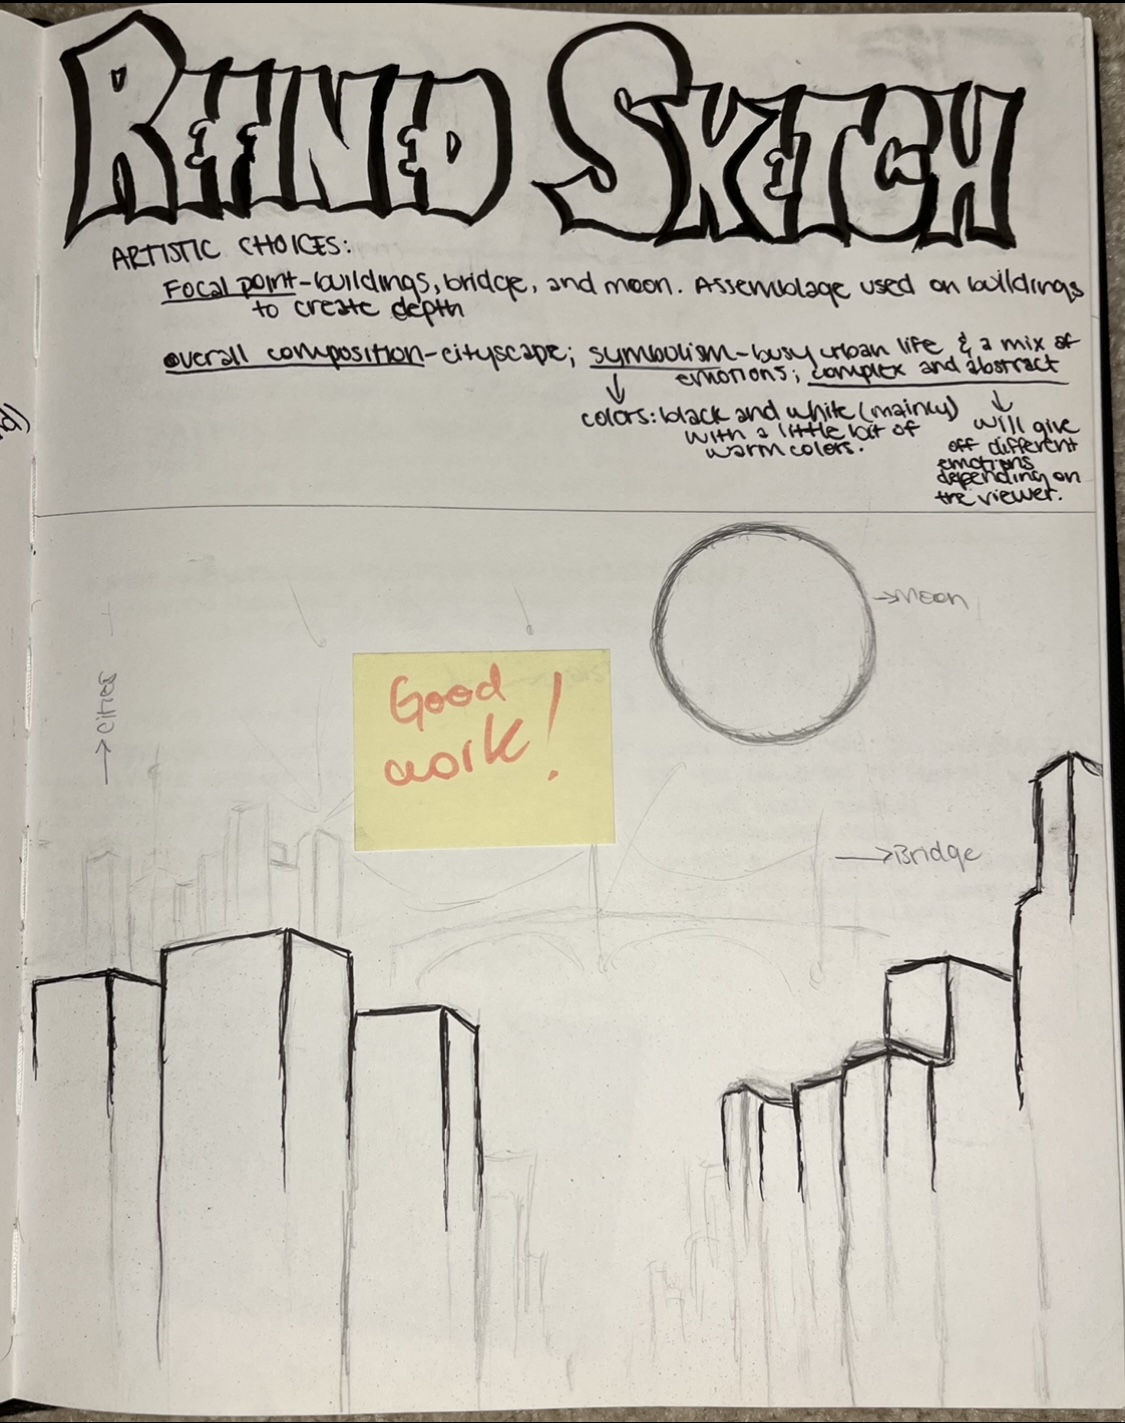 REFINED SKETCH
ARTISTIC CHOICES:
Focal point-buildings, bridge, and moon. Assemblage used on buildings
to create depth
overall composition-cityscape; symbolism-busy urban life & a mix of
emotions; complex and abstract
colors: black and white (mainly)
with a little bit of
warm colors.
will give
off different
emotions
depending on
the viewer.
→Moon
Good
work!
→Cities
→Bridge